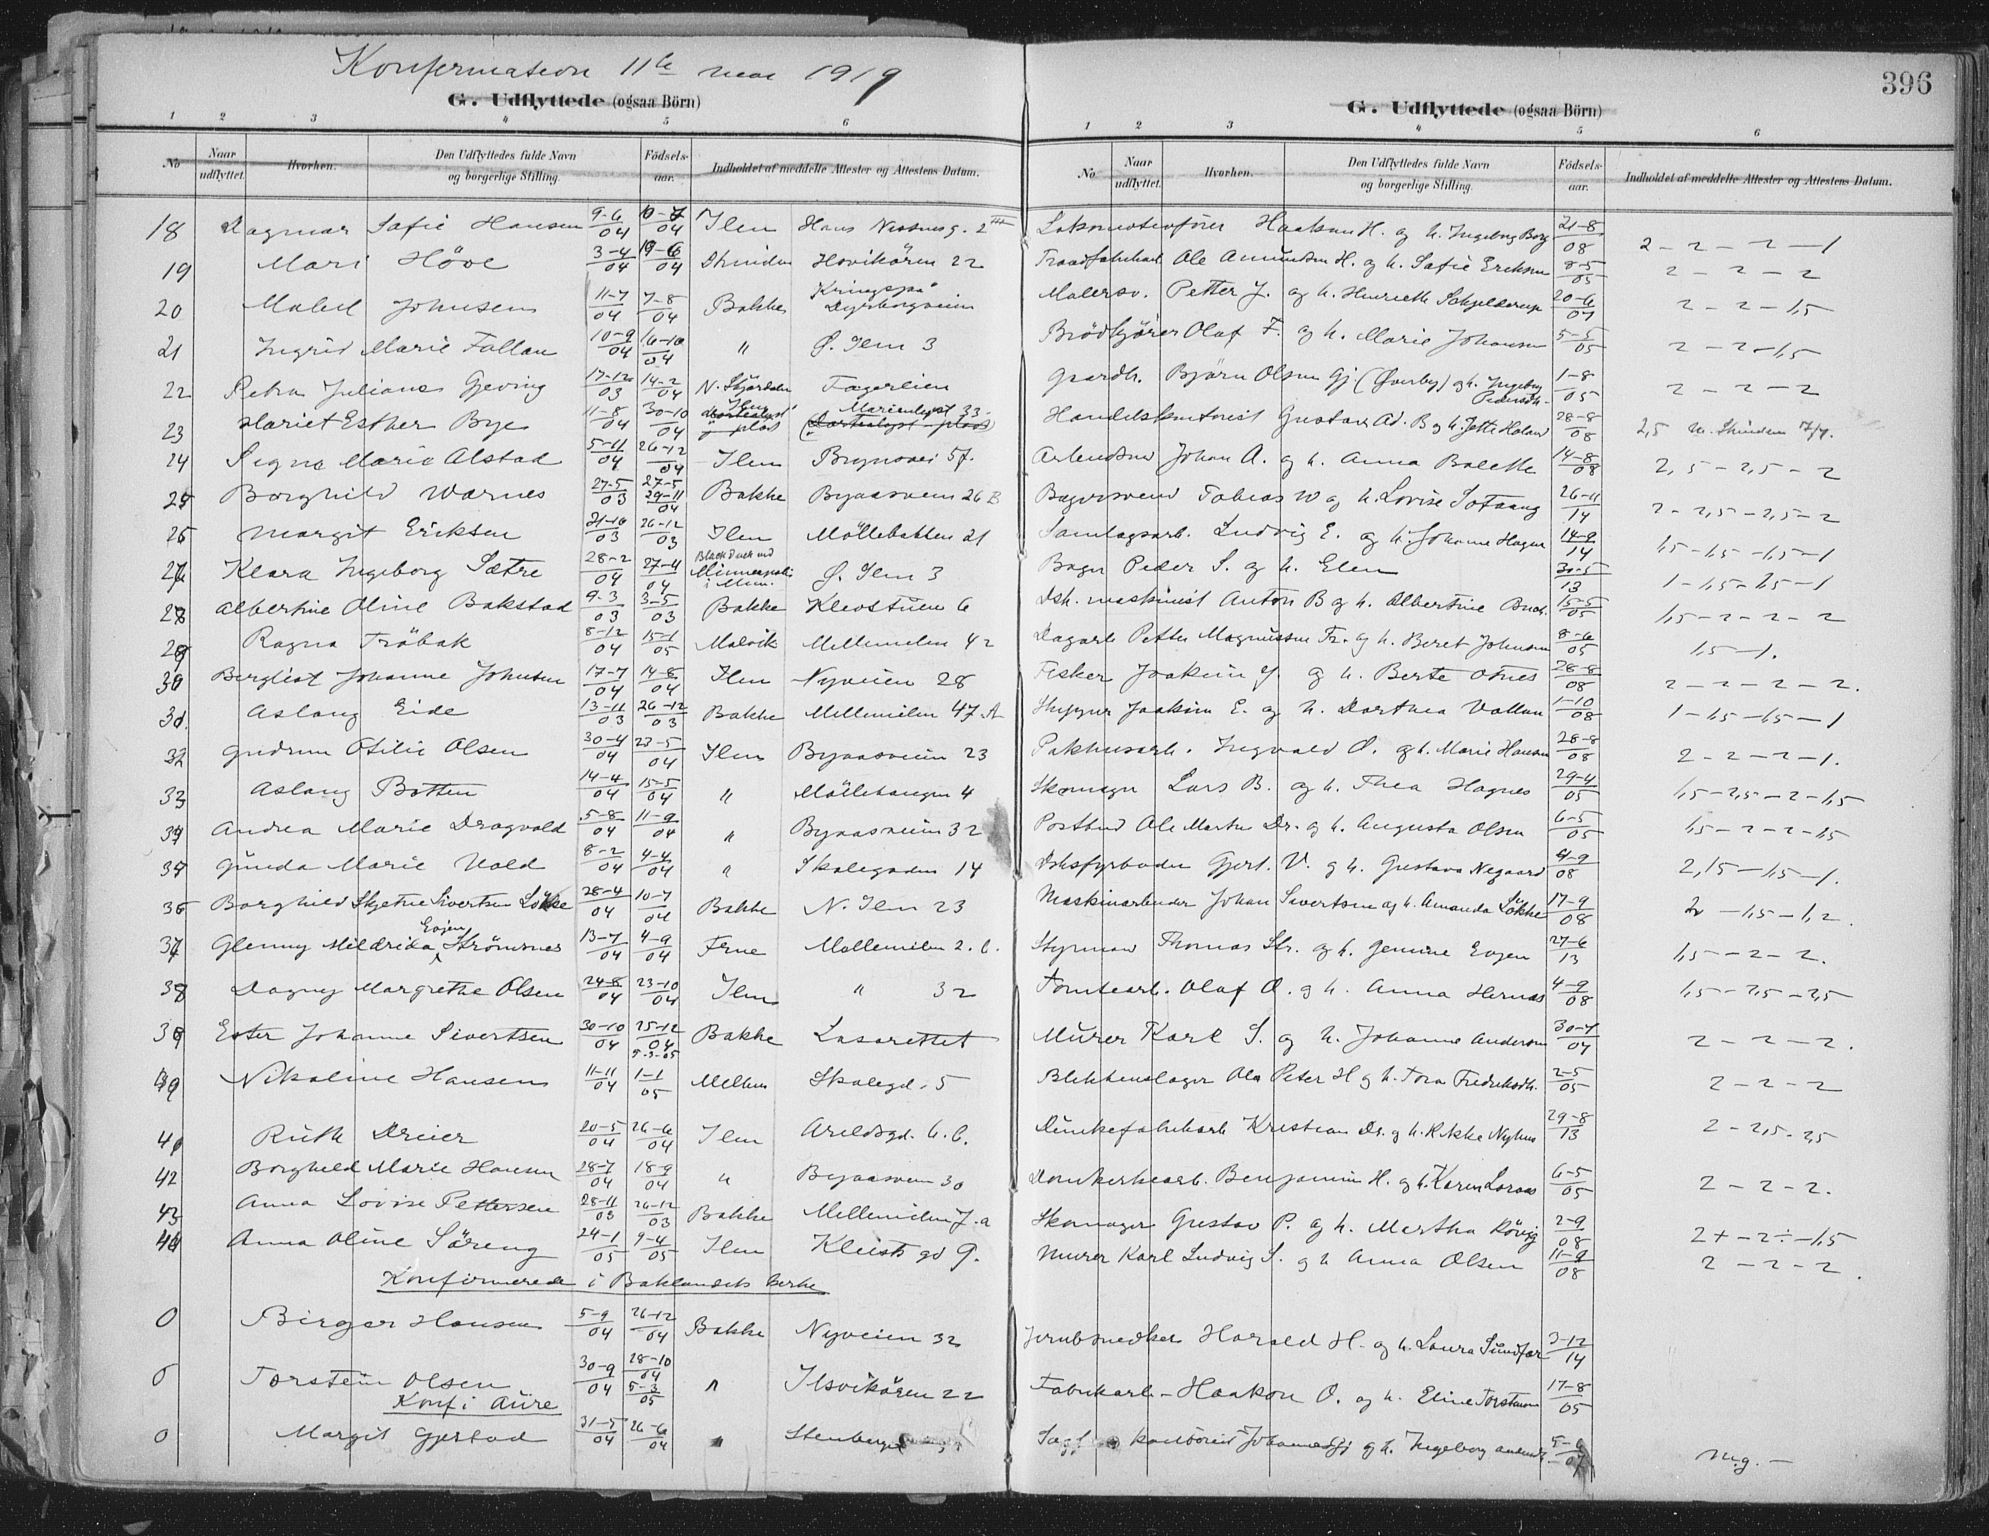 Konfirmation 11te mai 1919
396
G. Udflyttede (ogsaa Börn)
G. Udflyttede (ogsaa Börn)
1 2 3 4 5 6
1 2 3 4 5 6
No Naar udflyttet. Hvorhen. Den Udflyttedes fulde Navn og borgerlige Stilling. Fødsels-aar. Indholdet af meddelte Attester og Attestens Datum.
No Naar udflyttet. Hvorhen. Den Udflyttedes fulde Navn og borgerlige Stilling. Fødsels-aar. Indholdet af meddelte Attester og Attestens Datum.
18 Dagmar Sofie Hansen 9-6/04 10-7/04 Ilen Hans Nissensg. 2 Lokomotivförer Haakon H. og h. Ingeborg Borg 21-8/08 2-2-2-1
19 Mari Höve 3-4/04 19-6/04 Hovikören 22 Ole Amundsen H. og h. Sofie Eriksen 8-5/05 2-2-2
20 Mabel Johnsen 11-7/04 7-8/04 Bakke Kringsjaa Dyrborgveien Malersv. Petter J. og h. Henriette Schjelderup 20-6/07 2-2-1,5
21 Ingrid Marie Fallan 10-9/04 16-10/04 " Ø. Ilen 3 Brödkjörer Olaf F. og h. Marie Johansen 5-5/05 2-2-1,5
22 Petra Juliane Gjeving 17-12/03 14-2/04 N. Stjørdalen Fagerlien Gaardb. Bjørn Olsen Gj (Øverby) og h. Ingeborg Pedersdt. 1-8/05 2-2-2
23 Hariet Esther Bye 11-8/04 30-10/04 Ilen Marienlyst 33 Handelskontorist Gustav Ad. B og h. Jette Holand 28-8/08 2,5
24 Signe Marie Alstad 5-11/04 26-12/04 Ilen Bynesvei 57. Arbeidsmd Johan A. og h. Anna Bolette 14-8/08 2,5-2,5-2
25 Borghild Warnes 27-5/03 27-5 29-11/04 Bakke Byaasveien 26 B Bagersvend Tobias W og h. Lovise Sotaang 26-11/14 2-2,5-2,5-2
26 Margit Eriksen 21-10/03 26-12/03 Ilen Möllebakken 21 Samlagsarb. Ludvig E. og h. Johanne Hagen 14-9/14 1,5-1,5-1,5-1
27 Klara Ingeborg Sætre 28-2/04 27-4/04 Minneapolis i Minn. Ø. Ilen 3 Bager Peder S. og h. Elen 30-5/13 1-1,5-1,5-1
28 Albertine Oline Bakstad 9-3/03 3-5/03 Bakke Klevstuen 6 Dsk. maskinist Anton B og h. Albertine 15-5/05 1,5-2-2-2
29 Ragna Tröbak 8-12/04 15-1/05 Malvik Mellemilen 42 Dagarb Petter Magnussen Tr. og h. Beret Johnsen 8-6/05 1,5-1.
30 Bergliot Johanne Johnsen 17-7/04 14-8/04 Ilen Nyveien 28 Fisker Joakim J. og h. Berte Otnes 28-8/08 2-2-2-2.
31. Aslaug Eide 13-11/03 26-12/03 Bakke Mellemilen 47.A Skipper Joakim E. og h. Dorthea Vollan 1-10/08 1-1,5-1,5-1
32 Gudrun Otilie Olsen 30-4/04 23-5/04 Ilen Byaasveien 23 Pakhusarb. Ingvald O. og h. Marie Hansen 28-8/08 2-2-2-1.
33 Aslaug Botten 14-4/04 15-5/04 " Möllebangen 4 Skomager Lars B. og h. Thea Hagnes 29-4/05 1,5-2,5-2-1,5
34 Andrea Marie Dragvold 5-8/04 11-9/04 " Byaasveien 32 Postbud Ole Martin Dr. og h. Augusta Olsen 6-5/05 1,5-2-2-1,5
35 Gunda Marie Vold 8-2/04 4-4/04 " Skolegaden 14 Dskfyrböder Gjert. V. og h. Gustava Negaard 4-9/08 2,15-1,5-1.
36 Borghild Sivertsen Løkke 28-4/04 10-7/04 Bakke N. Ilen 23 Maskinarbeider Johan Sivertsen og h. Amanda Løkke 17-9/08 2-1,5-1,2.
37 Glenny Mildrida Evjen Strömsnes 13-7/04 4-9/04 Mellemilen 2.b. Styrmand Thomas Str. og h. Jenine Evjen 27-6/13 1,5-2-2.
38 Dagny Margrethe Olsen 24-8/04 23-10/04 Ilen " 32 Tomtearb. Olaf O. og h. Anna Hernes 4-9/08 1,5-2,5-2,5
39 Ester Johanne Sivertsen 30-10/04 25-12/04 5-3-05 Bakke Lasarettet Murer Karl S. og h. Johanne Andersen 30-7/04 2-2-2.
40 Nikoline Hansen 11-11/04 1-1/05 Melhus Skolegd. 5 Blikkenslager Ole Peter H og h. Tora Fredriksdt. 2-5/05 2-2-2
41 Ruth Dreier 20-5/04 26-6/04 Ilen Arildsgd. 6.b. Kristian Dr. og h. Rikke Nyhus 29-8/13 2-2,5-2,5
42 Borghild Marie Hansen 28-7/04 18-9/04 " Byaasveien 30 Domkirkearb. Benjamin H. og h. Karen Loraas 6-5/05 2-2-2.
43 Anna Lovise Pettersen 28-11/03 26-12/03 Bakke Mellemilen 7.a Skomager Gustav P. og h. Martha Rövig 2-9/08 2+-2÷-1,5
44 Anna Oline Söreng 24-1/05 9-4/05 Ilen Kleists gd 9. Murer Karl Ludvig S. og h Anna Olsen 11-9/08 2-2-2.
Konfirmerede i Baklandets kirke
0 Birger Hansen 5-9/04 26-12/04 Bakke Nyveien 32 Jernbsnedker Harald H. og h. Laura Sundfær 3-12/14
0 Torstein Olsen 30-9/04 28-10/04 5-3/05 " Ilsvikören 22 Fabrikarb- Haakon O. og h. Eline Torstensen 17-8/05
Konf. i Aure
0 Margit Gjertad 31-5/04 26-6/04 " Johannes Gj og h. Ingeborg m.g.-